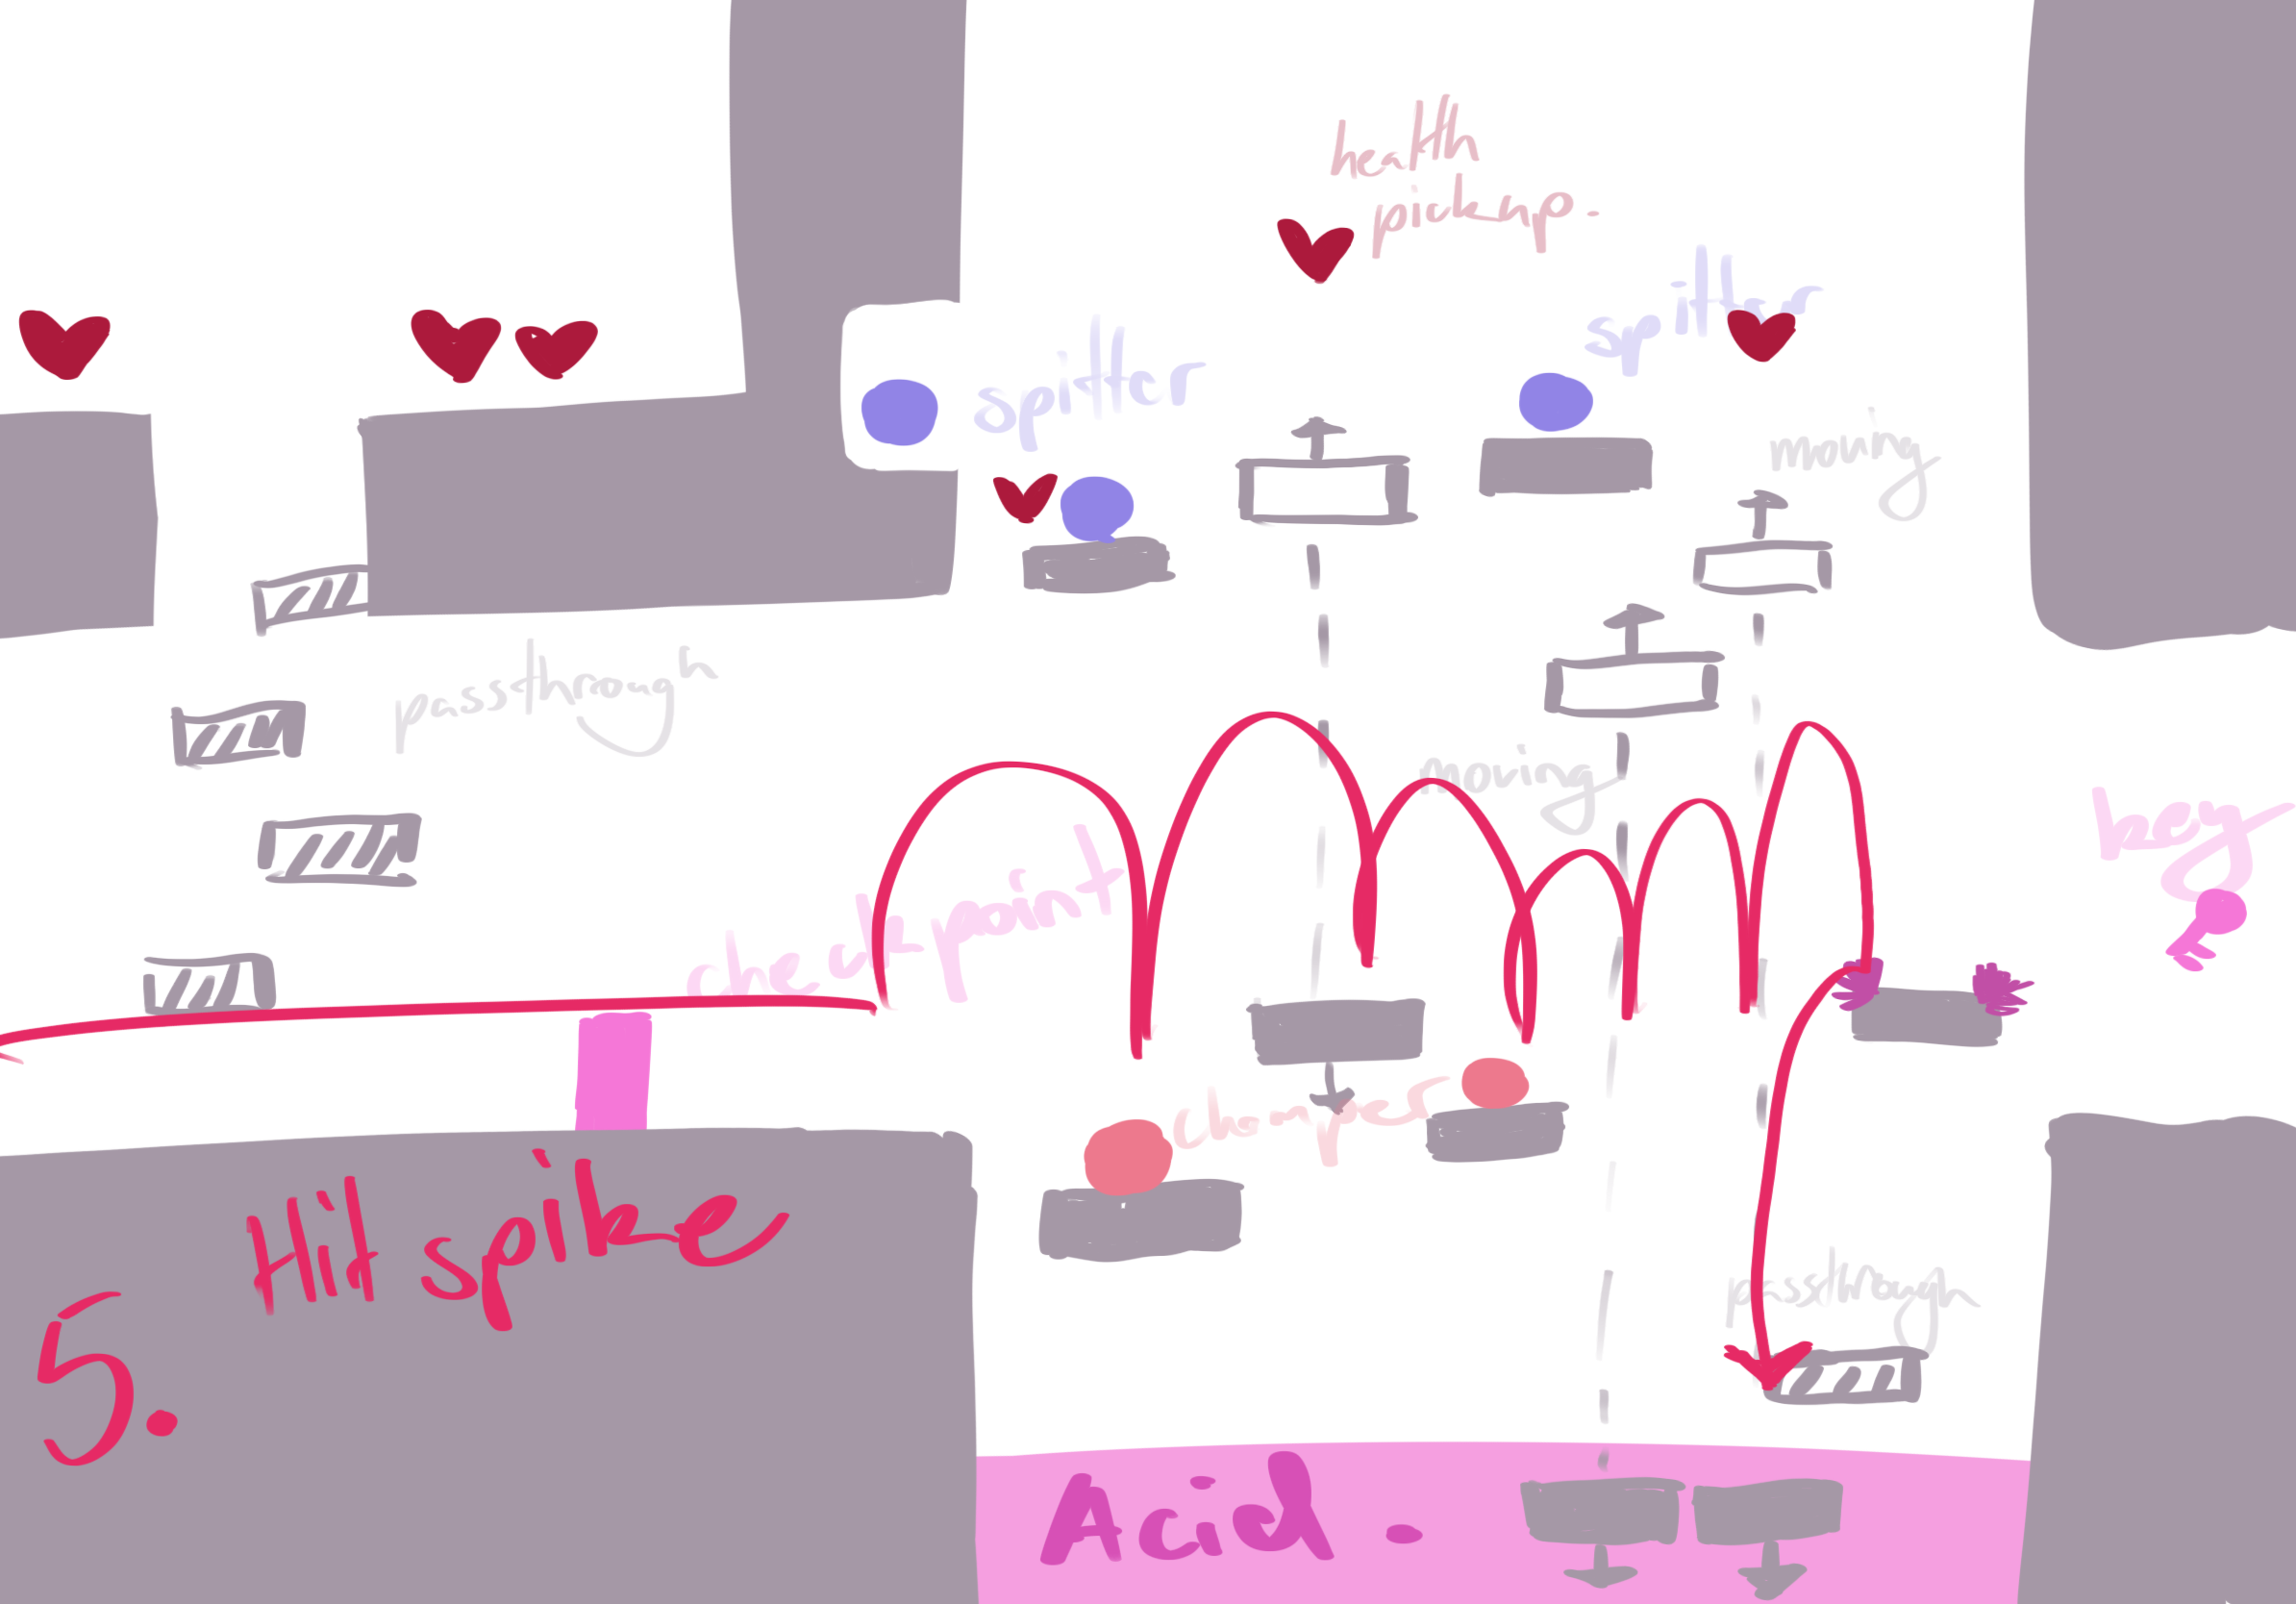 health
pickup.
spitter
spitter
moving
passthrough
moving
key
checkpoint
chomper
Hit spike
5.
passthrough
Acid.